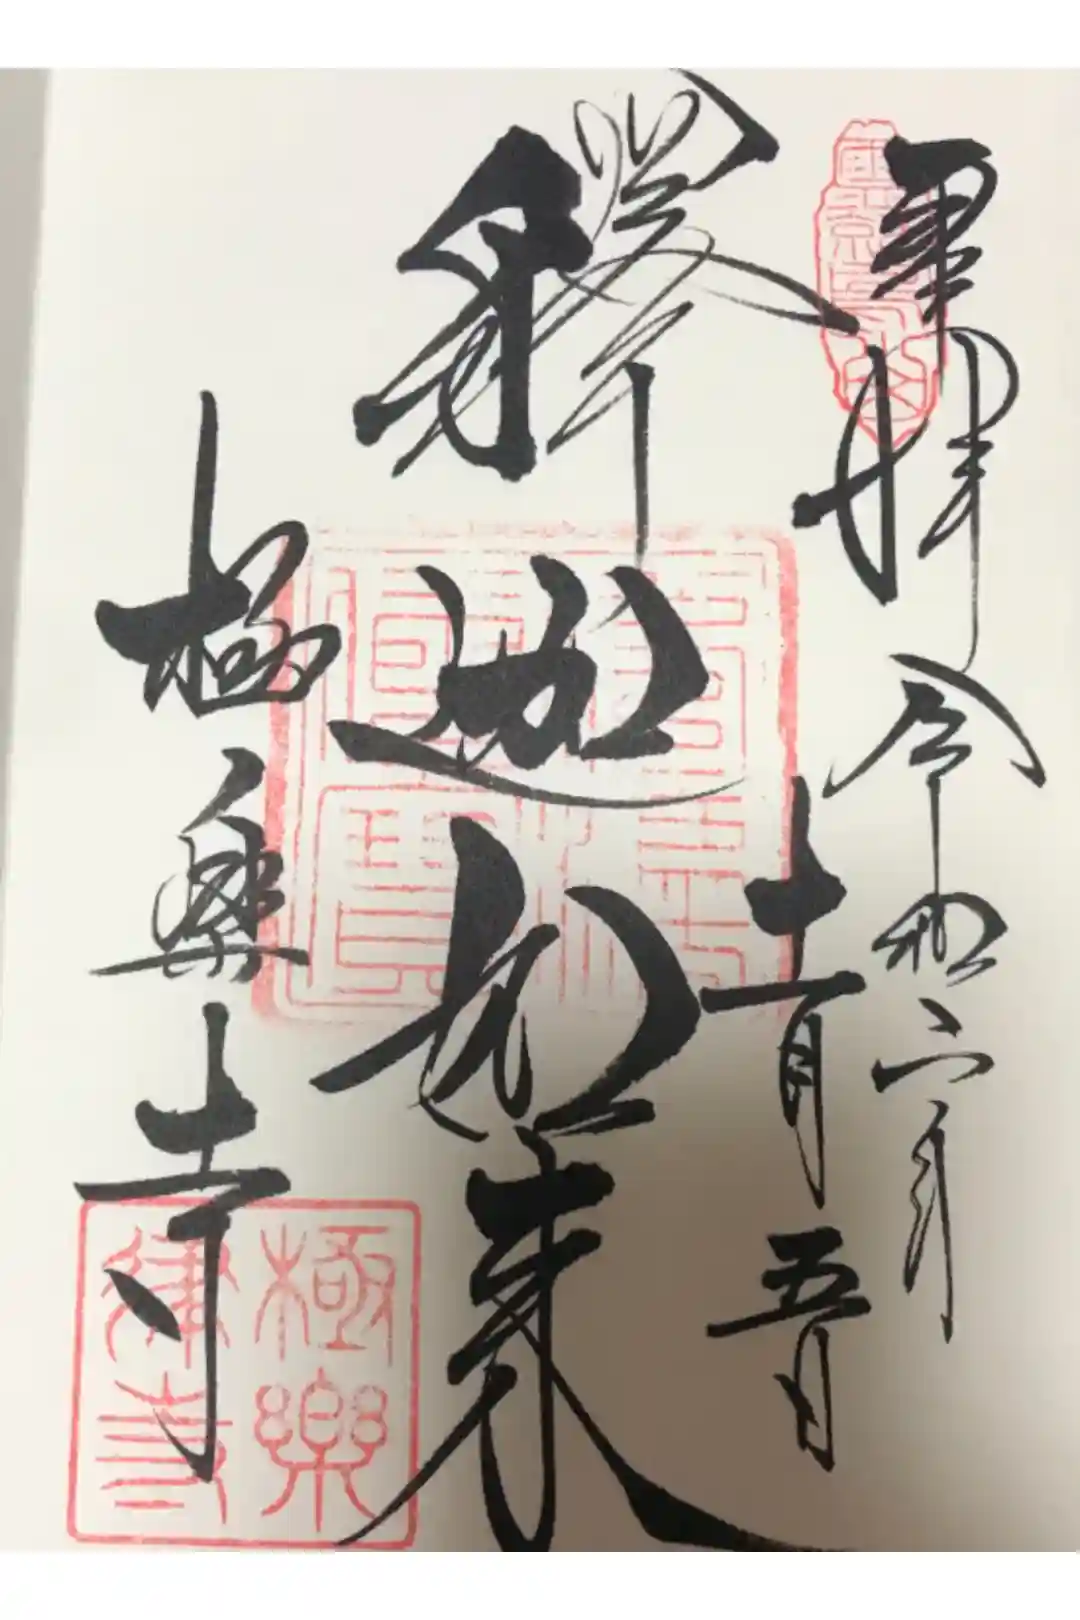 奉拝 令和六年
十一月五日
釋迦如来
極樂寺
極樂
律寺